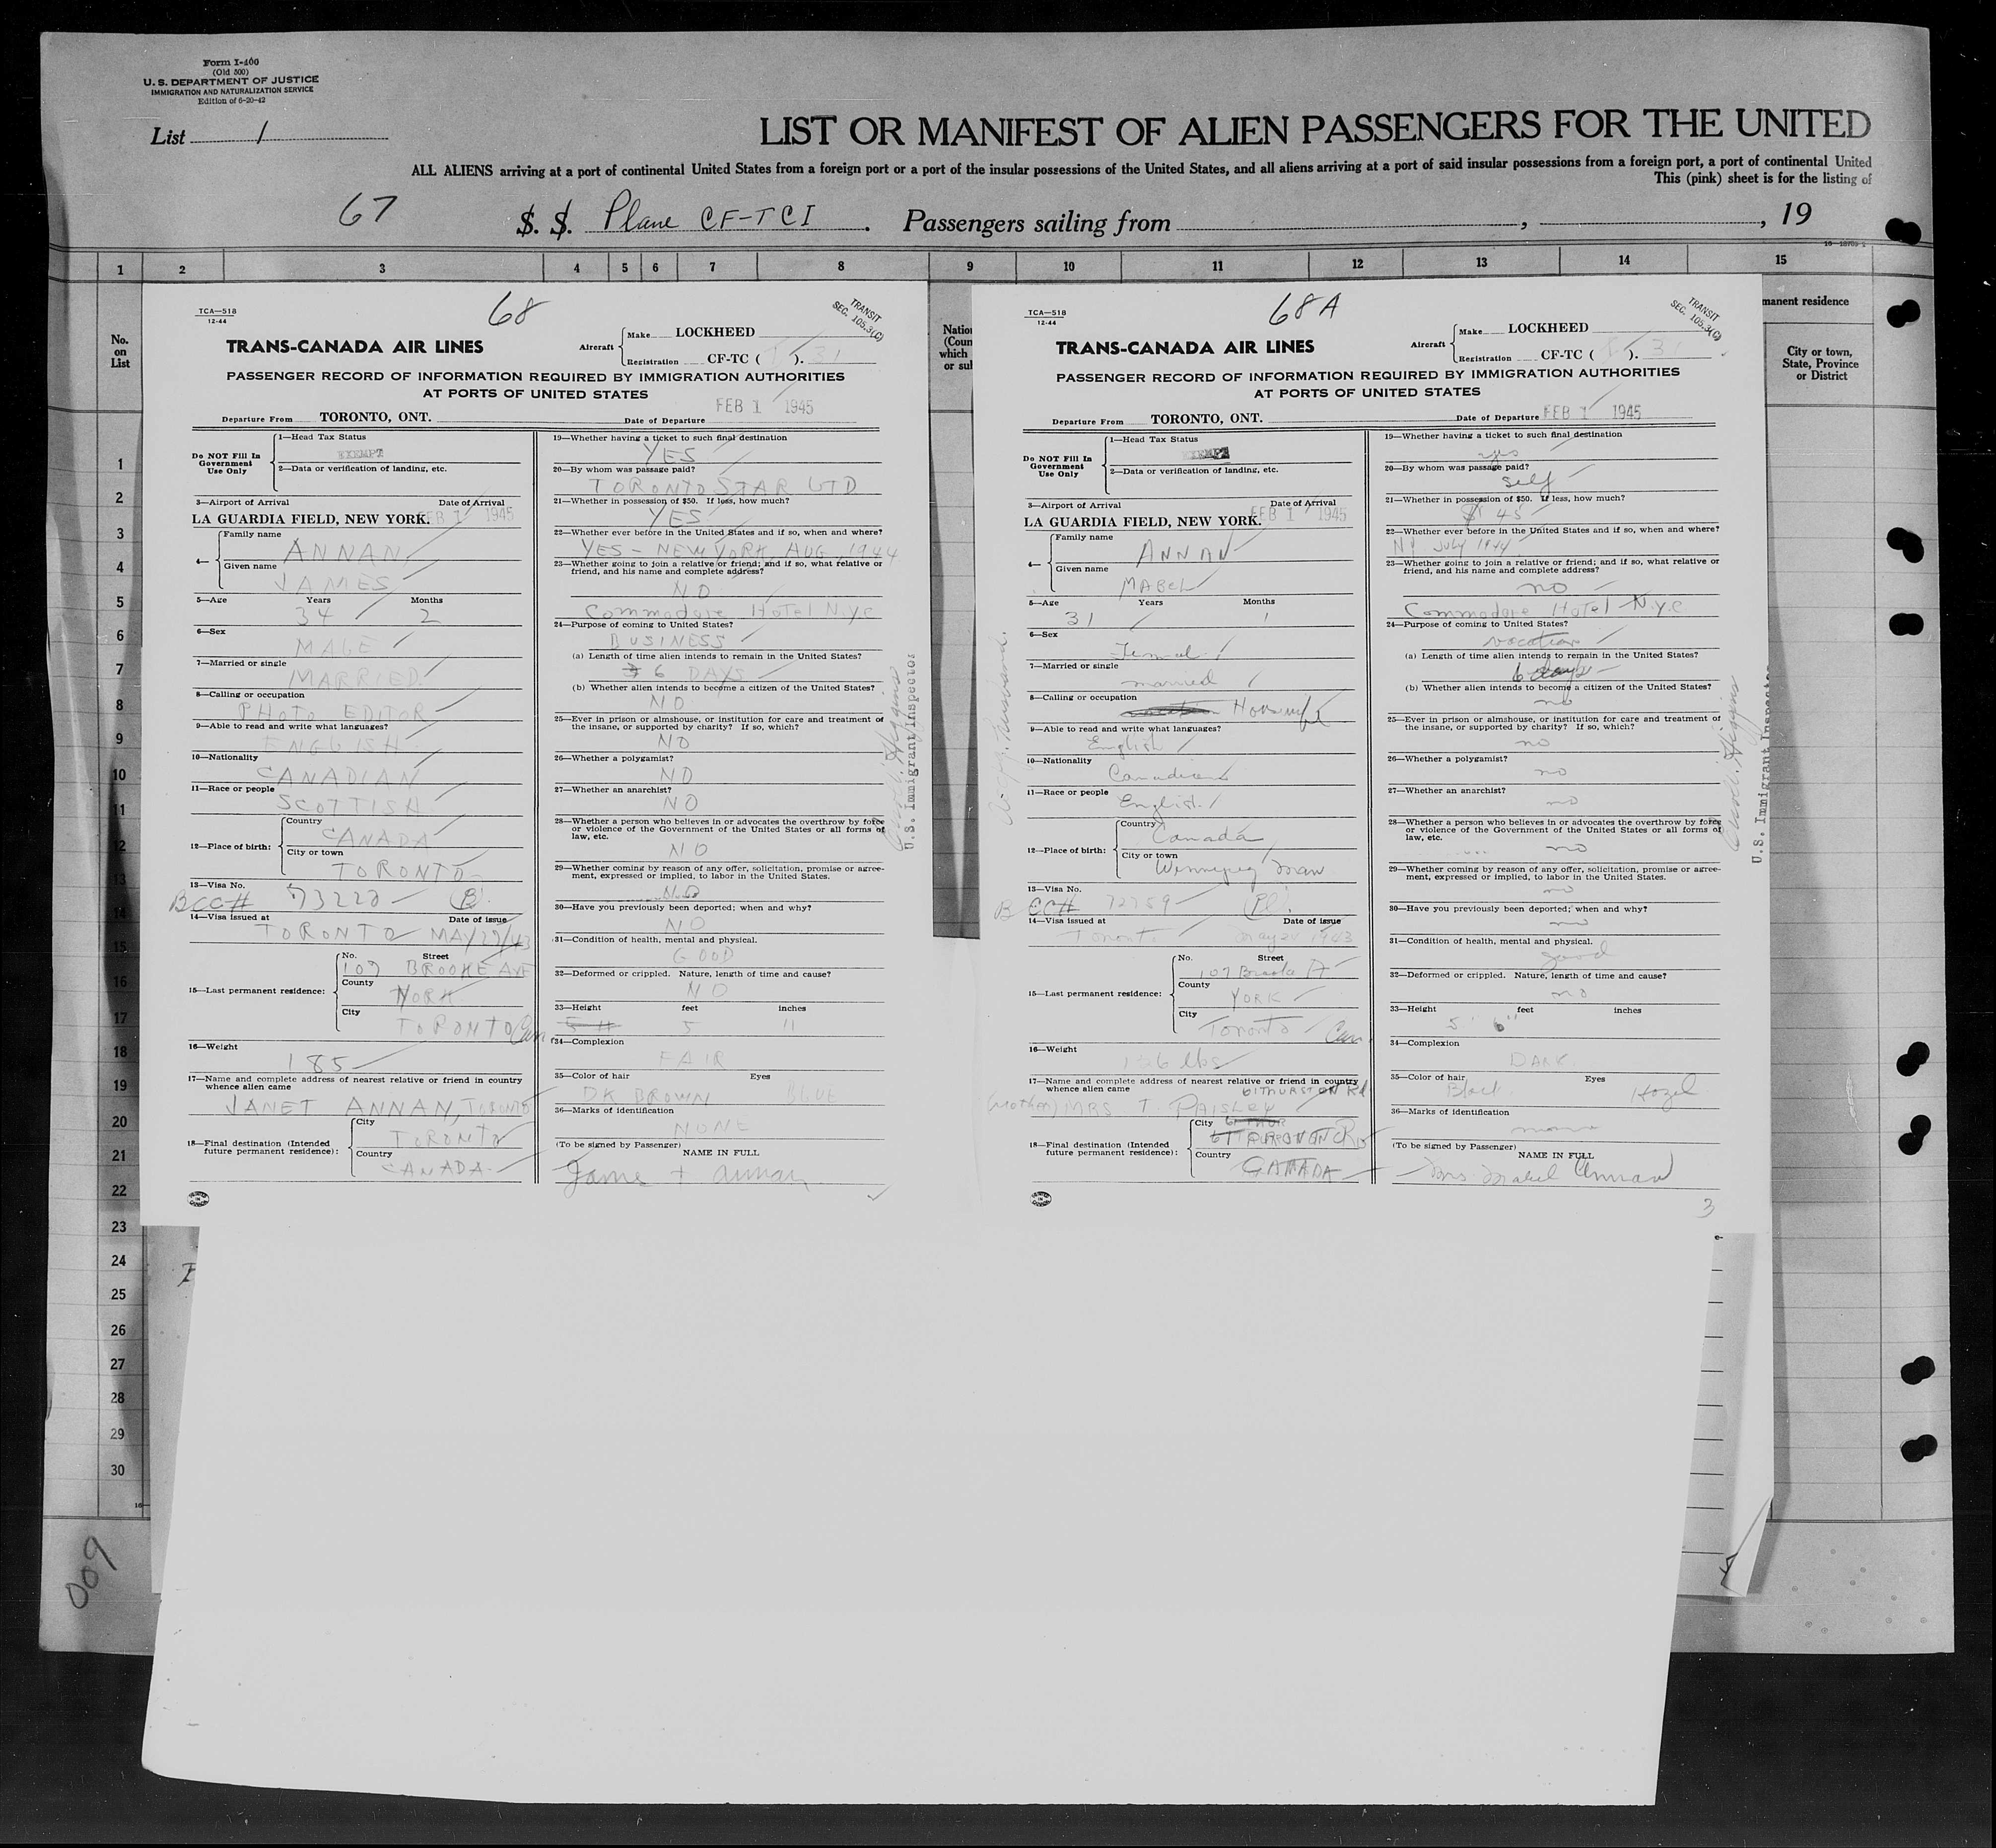 Form I-400
(Old 500)
U. S. DEPARTMENT OF JUSTICE
IMMIGRATION AND NATURALIZATION SERVICE
Edition of 6-20-42
List 1
LIST OR MANIFEST OF ALIEN PASSENGERS FOR THE UNITED
ALL ALIENS arriving at a port of continental United States from a foreign port or a port of the insular possessions of the United States, and all aliens arriving at a port of said insular possessions from a foreign port, a port of continental United
This (pink) sheet is for the listing of
67 S. S. Plane CF-TCI. Passengers sailing from , , 19
1 2 3 4 5 6 7 8 9 10 11 12 13 14 15
No.
on
List
1
2
3
4
5
6
7
8
9
10
11
12
13
14
15
16
17
18
19
20
21
22
23
24
25
26
27
28
29
30
TCA—518
12-44
68
TRANSIT
SEC. 105.3(C)
TRANS-CANADA AIR LINES
Aircraft
Make LOCKHEED
Registration CF-TC ( ).
PASSENGER RECORD OF INFORMATION REQUIRED BY IMMIGRATION AUTHORITIES
AT PORTS OF UNITED STATES
FEB 1 1945
Departure From TORONTO, ONT. Date of Departure
Do NOT Fill In
Government
Use Only
1—Head Tax Status
EXEMPT
2—Data or verification of landing, etc.
3—Airport of Arrival Date of Arrival
LA GUARDIA FIELD, NEW YORK. FEB 1 1945
4— Family name
ANNAN
Given name
JAMES
5—Age Years Months
34 2
6—Sex
MALE
7—Married or single
MARRIED
8—Calling or occupation
PHOTO EDITOR
9—Able to read and write what languages?
ENGLISH
10—Nationality
CANADIAN
11—Race or people
SCOTTISH
12—Place of birth:
Country
CANADA
City or town
TORONTO
13—Visa No.
BCC# 73228
14—Visa issued at Date of issue
TORONTO MAY 27/43
15—Last permanent residence:
No. Street
107 BROOKE AVE
County
YORK
City
TORONTO Can
16—Weight
185
17—Name and complete address of nearest relative or friend in country
whence alien came
JANET ANNAN, TORONTO
18—Final destination (Intended
future permanent residence):
City
TORONTO
Country
CANADA
19—Whether having a ticket to such final destination
YES
20—By whom was passage paid?
TORONTO STAR LTD
21—Whether in possession of $50. If less, how much?
YES
22—Whether ever before in the United States and if so, when and where?
YES - NEW YORK, AUG, 1944
23—Whether going to join a relative or friend; and if so, what relative or
friend, and his name and complete address?
NO
Commodore Hotel N.Y.C
24—Purpose of coming to United States?
BUSINESS
(a) Length of time alien intends to remain in the United States?
6 DAYS
(b) Whether alien intends to become a citizen of the United States?
NO
25—Ever in prison or almshouse, or institution for care and treatment of
the insane, or supported by charity? If so, which?
NO
26—Whether a polygamist?
NO
27—Whether an anarchist?
NO
28—Whether a person who believes in or advocates the overthrow by force
or violence of the Government of the United States or all forms of
law, etc.
NO
29—Whether coming by reason of any offer, solicitation, promise or agree-
ment, expressed or implied, to labor in the United States.
NO
30—Have you previously been deported; when and why?
NO
31—Condition of health, mental and physical.
GOOD
32—Deformed or crippled. Nature, length of time and cause?
NO
33—Height feet inches
5 11
34—Complexion
FAIR
35—Color of hair Eyes
DK BROWN BLUE
36—Marks of identification
NONE
(To be signed by Passenger)
NAME IN FULL
James T Annan
U.S. Immigrant Inspector
Natio
(Coun
which
or sul
TCA—518
12-44
68A
TRANSIT
SEC. 105.3(C)
TRANS-CANADA AIR LINES
Aircraft
Make LOCKHEED
Registration CF-TC ( ).
PASSENGER RECORD OF INFORMATION REQUIRED BY IMMIGRATION AUTHORITIES
AT PORTS OF UNITED STATES
Departure From TORONTO, ONT. Date of Departure FEB 1 1945
Do NOT Fill In
Government
Use Only
1—Head Tax Status
EXEMPT
2—Data or verification of landing, etc.
3—Airport of Arrival Date of Arrival
LA GUARDIA FIELD, NEW YORK. FEB 1 1945
4— Family name
ANNAN
Given name
MABEL
5—Age Years Months
31 1
6—Sex
Female
7—Married or single
married
8—Calling or occupation
Housewife
9—Able to read and write what languages?
English
10—Nationality
Canadian
11—Race or people
English
12—Place of birth:
Country
Canada
City or town
Winnipeg Man
13—Visa No.
BCC# 72759
14—Visa issued at Date of issue
Toronto May 20 1943
15—Last permanent residence:
No. Street
107 Brooke A
County
YORK
City
Toronto Can
16—Weight
136 lbs
17—Name and complete address of nearest relative or friend in country
whence alien came
(mother) MRS. T. PAISLEY
18—Final destination (Intended
future permanent residence):
City
TORONTO
Country
CANADA
19—Whether having a ticket to such final destination
yes
20—By whom was passage paid?
Self
21—Whether in possession of $50. If less, how much?
$ 45
22—Whether ever before in the United States and if so, when and where?
NY July 1944
23—Whether going to join a relative or friend; and if so, what relative or
friend, and his name and complete address?
no
Commodore Hotel N.Y.C
24—Purpose of coming to United States?
vacation
(a) Length of time alien intends to remain in the United States?
6 days
(b) Whether alien intends to become a citizen of the United States?
no
25—Ever in prison or almshouse, or institution for care and treatment of
the insane, or supported by charity? If so, which?
no
26—Whether a polygamist?
no
27—Whether an anarchist?
no
28—Whether a person who believes in or advocates the overthrow by force
or violence of the Government of the United States or all forms of
law, etc.
no
29—Whether coming by reason of any offer, solicitation, promise or agree-
ment, expressed or implied, to labor in the United States.
no
30—Have you previously been deported; when and why?
no
31—Condition of health, mental and physical.
good
32—Deformed or crippled. Nature, length of time and cause?
no
33—Height feet inches
5' 6"
34—Complexion
DARK
35—Color of hair Eyes
Black Hazel
36—Marks of identification
none
(To be signed by Passenger)
NAME IN FULL
Mrs Mabel Annan
3
U.S. Immigrant Inspector
manent residence
City or town,
State, Province
or District
609